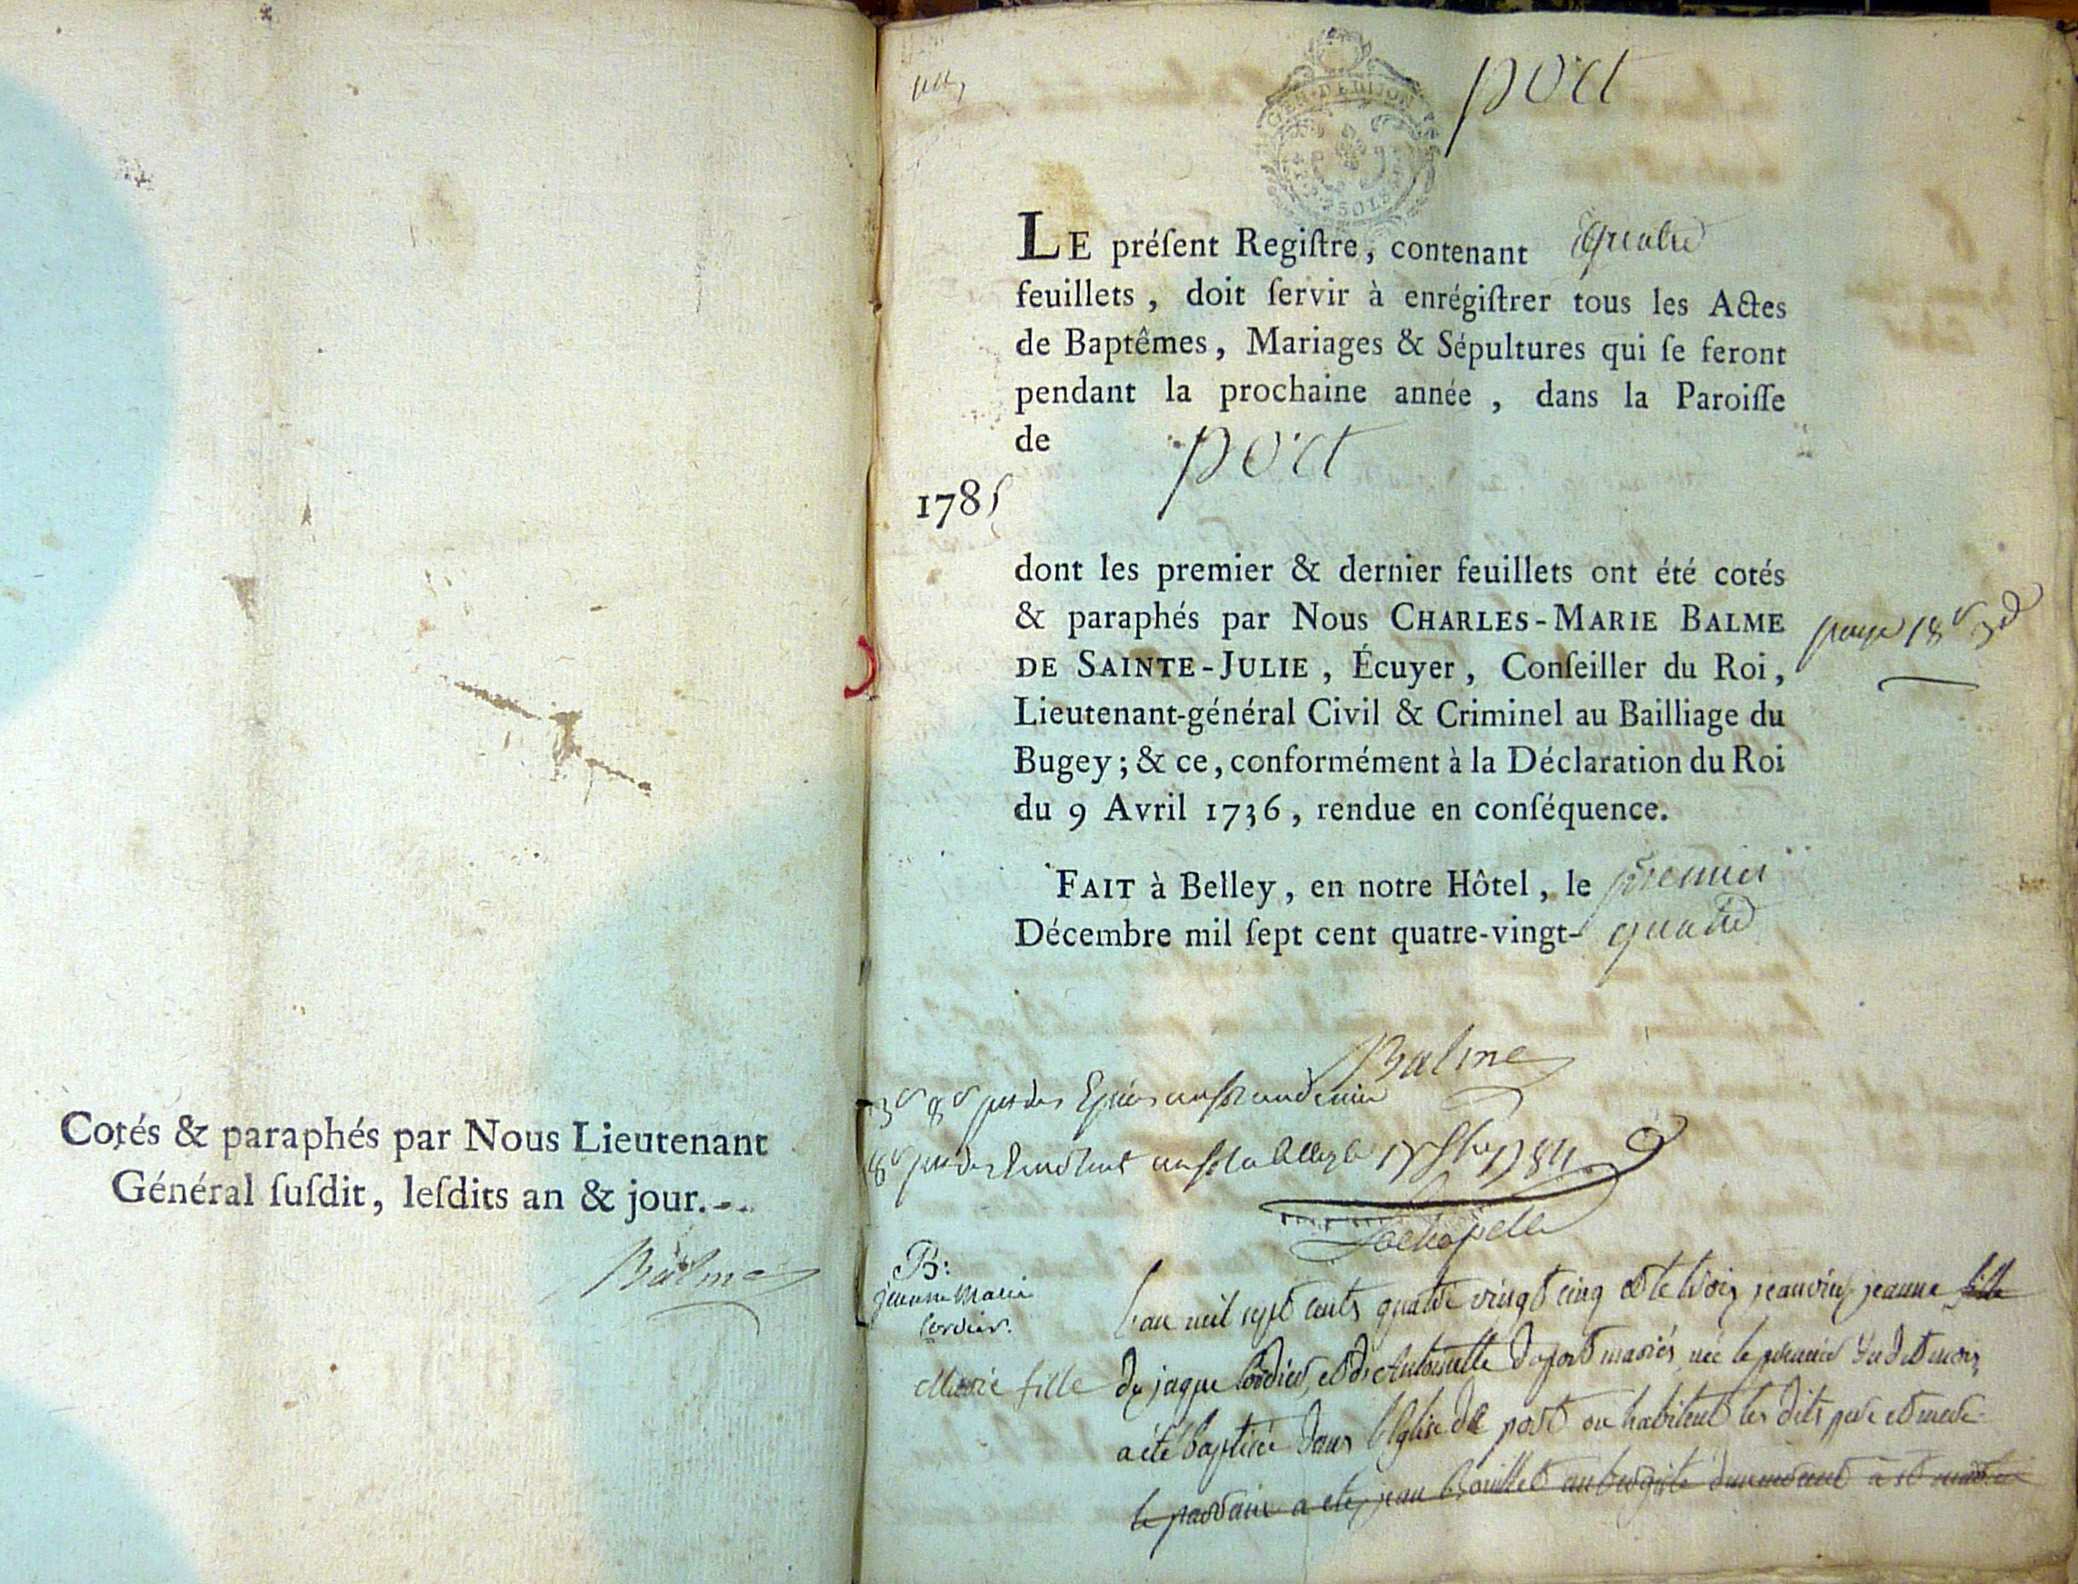 Cotés & paraphés par Nous Lieutenant
Général ſuſdit, leſdits an & jour.
Balme
port
GEN·DEDIJON
SOLS
LE préſent Regiſtre, contenant quatre
feuillets, doit ſervir à enrégiſtrer tous les Actes
de Baptêmes, Mariages & Sépultures qui ſe feront
pendant la prochaine année, dans la Paroiſſe
de port
1785
dont les premier & dernier feuillets ont été cotés
& paraphés par Nous CHARLES-MARIE BALME
DE SAINTE-JULIE, Écuyer, Conſeiller du Roi,
Lieutenant-général Civil & Criminel au Bailliage du
Bugey; & ce, conformément à la Déclaration du Roi
du 9 Avril 1736, rendue en conſéquence.
FAIT à Belley, en notre Hôtel, le premier
Décembre mil ſept cent quatre-vingt-quatre
Balme
Lachapelle
B:
jeanne Marie
Cordier.
L'an mil sept cents quatre vingt cinq et le trois janvier jeanne fille
Marie fille de jaque Cordier, et de Antoinette Duport mariés, née le premier du dit mois,
a été baptisée dans l'Eglise de port ou habitent les dits pere et mere
le parrain a ete jean Bouillet aubergiste demeurant a st martin